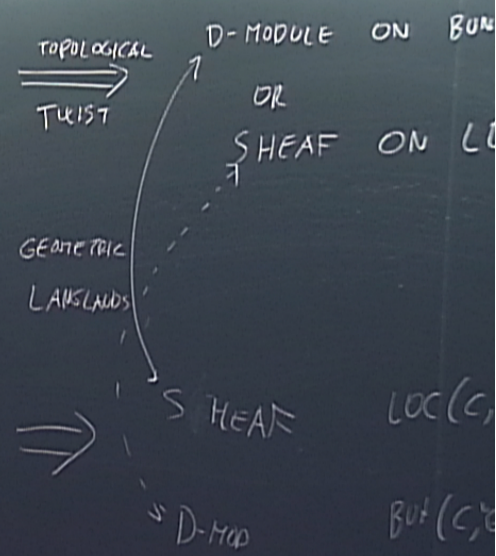 TOPOLOGICAL
TWIST
D-MODULE ON BUN
OR
SHEAF ON LO
GEOMETRIC
LANGLANDS
SHEAF LOC(C,
D-MOD BUN(C,